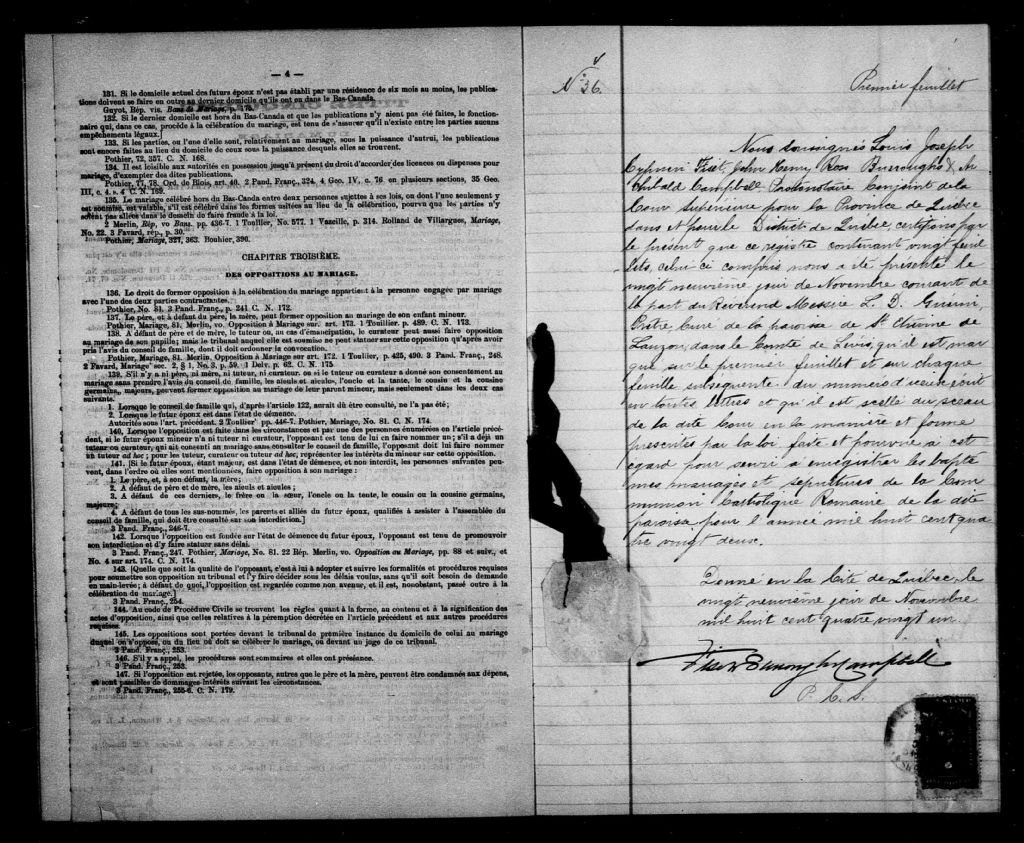 — 4 —
131. Si le domicile actuel des futurs époux n'est pas établi par une résidence de six mois au moins, les publica-
tions doivent se faire en outre au dernier domicile qu'ils ont eu dans le Bas-Canada.
Guyot, Rép. vis. Bans de Mariage, p. 175.
132. Si le dernier domicile est hors du Bas-Canada et que les publications n'y aient pas été faites, le fonction-
naire qui, dans ce cas, procède à la célébration du mariage, est tenu de s'assurer qu'il n'existe entre les parties aucuns
empêchements légaux.]
133. Si les parties, ou l'une d'elle sont, relativement au mariage, sous la puissance d'autrui, les publications
sont encore faites au lieu du domicile de ceux sous la puissance desquels elles se trouvent.
Pothier, 72, 357. C. N. 168.
134. Il est loisible aux autorités en possession jusqu'à présent du droit d'accorder des licences ou dispenses pour
mariage, d'exempter des dites publications.
Pothier, 77, 78. Ord. de Blois, art. 40. 2 Pand. Franç., 324. 4 Geo. IV, c. 76. en plusieurs sections, 35 Geo.
III, c. 4. s. 4 C. N. 169.
135. Le mariage célébré hors du Bas-Canda entre deux personnes sujettes à ses lois, ou dont l'une seulement y
est soumise, est valable, s'il est célébré dans les formes usitées au lieu de la célébration, pourvu que les parties n'y
soient pas allées dans le dessein de faire fraude à la loi.
2 Merlin, Rép, vo Bans. pp. 436-7. 1 Toullier, No. 577. 1 Vazeille, p. 314. Rolland de Villargues, Mariage,
No. 22. 3 Favard, rép., p. 30.
Pothier, Mariage, 327, 363. Bouhier, 390.
CHAPITRE TROISIÈME.
DES OPPOSITIONS AU MARIAGE.
136. Le droit de former opposition à la célébration du mariage appartient à la personne engagée par mariage
avec l'une des deux parties contractantes.
Pothier, No. 81. 3 Pand. Franç., p. 241 C. N. 172.
137. Le père, et à défaut du père, la mère, peut former opposition au mariage de son enfant mineur.
Pothier, Mariage, 81. Merlin, vo. Opposition à Mariage sur. art. 173. 1 Toullier, p. 489. C. N. 173.
138. A défaut de père et de mère, le tuteur ou, au cas d'émancipation, le curateur peut aussi faire opposition
au mariage de son pupille; mais le tribunal auquel elle est soumise ne peut statuer sur cette opposition qu'après avoir
pris l'avis du conseil de famille, dont il doit ordonner la convocation.
Pothier, Mariage, 81. Merlin, Opposition à Mariage sur art. 172. 1 Toullier, p. 425, 490. 3 Pand. Franç., 248.
2 Favard, Mariage sec. 2, § 1, No. 3, p. 59. 1 Delv. p. 62. C. N. 175
139. S'il n'y a ni père, ni mère, ni tuteur, ni curateur, ou si le tuteur ou curateur a donné son consentement au
mariage sans prendre l'avis du conseil de famille, les aïeuls et aïeules, l'oncle et la tante, le cousin et la cousine
germains, majeurs, peuvent former opposition au mariage de leur parent mineur, mais seulement dans les deux cas
suivants.
1. Lorsque le conseil de famille qui, d'après l'article 122, aurait dû être consulté, ne l'a pas été;
2. Lorsque le futur époux est dans l'état de démence.
Autorités sous l'art. précédent. 2 Toullier pp. 446-7. Pothier, Mariage, No. 81. C. N. 174.
140. Lorsque l'opposition est faite dans les circonstances et par une des personnes énumérées en l'article précé-
dent, si le futur époux mineur n'a ni tuteur ni curateur, l'opposant est tenu de lui en faire nommer un; s'il a déjà un
tuteur ou curateur, qui ait consenti au mariage sans consulter le conseil de famille, l'opposant doit lui faire nommer
un tuteur ad hoc; pour les tuteur, curateur ou tuteur ad hoc, représenter les intérêts du mineur sur cette opposition.
141. [Si le futur époux, étant majeur, est dans l'état de démence, et non interdit, les personnes suivantes peu-
vent, dans l'ordre où elles sont mentionnées, faire opposition à son mariage:
1. Le père, et, à son défaut, la mère;
2. A défaut de père et de mère, les aïeuls et aïeules;
3. A défaut de ces derniers, le frère ou la sœur, l'oncle ou la tante, le cousin ou la cousine germains,
majeurs;
4. A défaut de tous les sus-nommés, les parents et alliés du futur époux, qualifiés à assister à l'assemblée du
conseil de famille, qui doit être consulté sur son interdiction.]
3 Pand. Franç., 246-7.
142. Lorsque l'opposition est fondée sur l'état de démence du futur époux, l'opposant est tenu de promouvoir
son interdiction et d'y faire statuer sans délai.
3 Pand. Franç., 247. Pothier, Mariage, No. 81. 22 Rép. Merlin, vo. Opposition au Mariage, pp. 88 et suiv., et
No. 4 sur art. 174. C. N. 174.
143. [Quelque que soit la qualité de l'opposant, c'est à lui à adopter et suivre les formalités et procédures requises
pour soumettre son opposition au tribunal et l'y faire décider sous les délais voulus, sans qu'il soit besoin de demande
en main-levée; à défaut de quoi, l'opposition est regardée comme non avenue, et il est, nonobstant, passé outre à la
célébration du mariage.]
3 Pand. Franç., 254.
144. Au code de Procédure Civile se trouvent les règles quant à la forme, au contenu et à la signification des
actes d'opposition, ainsi que celles relatives à la péremption décrétée en l'article précédent et aux autres procédures
requises.
145. Les oppositions sont portées devant le tribunal de première instance du domicile de celui au mariage
duquel on s'oppose, ou du lieu où doit se célébrer le mariage, ou devant un juge de ce tribunal.
3 Pand. Franç., 253.
146. S'il y a appel, les procédures sont sommaires et elles ont préséance.
3 Pand. Franç., 253.
147. Si l'opposition est rejetée, les opposants, autres que le père et la mère, peuvent être condamnés aux dépens,
et sont passibles de dommages-intérêts suivant les circonstances.
3 Pand. Franç., 255-6. C. N. 179.
No 36.
Premier feuillet
Nous soussignés Louis Joseph
Cyprien Fiset, John Henry Ross Burroughs & Ar
chibald Campbell Protonotaire Conjoint de la
Cour Supérieure pour la Province de Québec
dans et pour le District de Québec, certifions par
le présent que ce registre contenant vingt feuil
lets, celui ci compris nous a été présenté le
vingt neuvième jour de Novembre courant de
la part du Reverend Messire L. D. Guérin,
Prêtre Curé de la paroisse de St Etienne de
Lauzon, dans le Comté de Levis, qu'il est mar
qué sur le premier feuillet et sur chaque
feuille subsequente du numero d'iceux ecrit
en toutes lettres et qu'il est scellé du sceau
de la dite Cour en la manière et forme
prescrites par la loi faite et pourvue à cet
egard pour servir à enregistrer les baptê
mes mariages et sépultures de la Com
munion Catholique Romaine de la dite
paroisse pour l'année mil huit cent qua
tre vingt deux.
Donné en la Cité de Québec, le
vingt neuvième jour de Novembre
mil huit cent quatre vingt un
Fiset Burroughs Campbell
P. C. S.